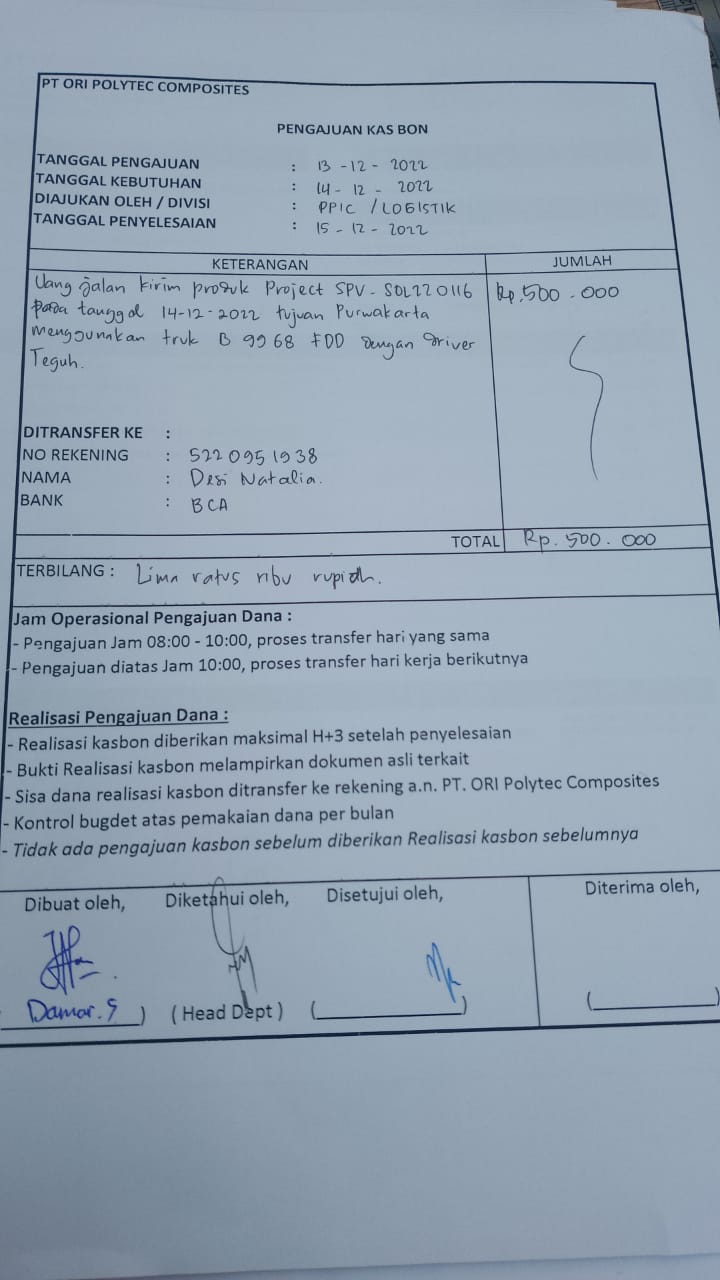 PT ORI POLYTEC COMPOSITES
PENGAJUAN KAS BON
TANGGAL PENGAJUAN : 13 - 12 - 2022
TANGGAL KEBUTUHAN : 14 - 12 - 2022
DIAJUKAN OLEH / DIVISI : PPIC / LOGISTIK
TANGGAL PENYELESAIAN : 15 - 12 - 2022
KETERANGAN JUMLAH
Uang jalan kirim produk Project SPV - SOL220116 Rp. 500.000
pada tanggal 14-12-2022 tujuan Purwakarta
menggunakan truk B 9968 FDD dengan driver
Teguh.
DITRANSFER KE :
NO REKENING : 5220951938
NAMA : Desi Natalia.
BANK : BCA
TOTAL Rp. 500.000
TERBILANG : Lima ratus ribu rupiah.
Jam Operasional Pengajuan Dana :
- Pengajuan Jam 08:00 - 10:00, proses transfer hari yang sama
- Pengajuan diatas Jam 10:00, proses transfer hari kerja berikutnya
Realisasi Pengajuan Dana :
- Realisasi kasbon diberikan maksimal H+3 setelah penyelesaian
- Bukti Realisasi kasbon melampirkan dokumen asli terkait
- Sisa dana realisasi kasbon ditransfer ke rekening a.n. PT. ORI Polytec Composites
- Kontrol bugdet atas pemakaian dana per bulan
- Tidak ada pengajuan kasbon sebelum diberikan Realisasi kasbon sebelumnya
Dibuat oleh, Diketahui oleh, Disetujui oleh, Diterima oleh,
Damar. S ) ( Head Dept ) ( ) ( )